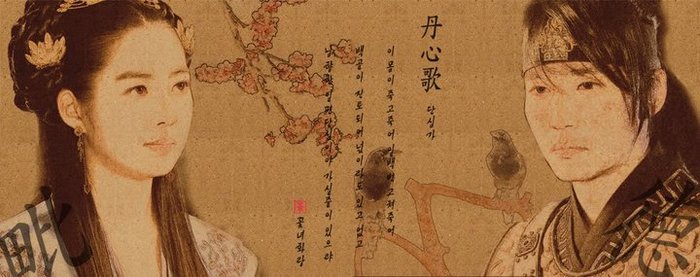 丹心歌 단심가
이 몸이 죽고죽어 일백번 고쳐죽어
백골이 진토되어 넋이라도 있고 없고
님 향한 일편단심이야 가실줄이 있으랴
毗